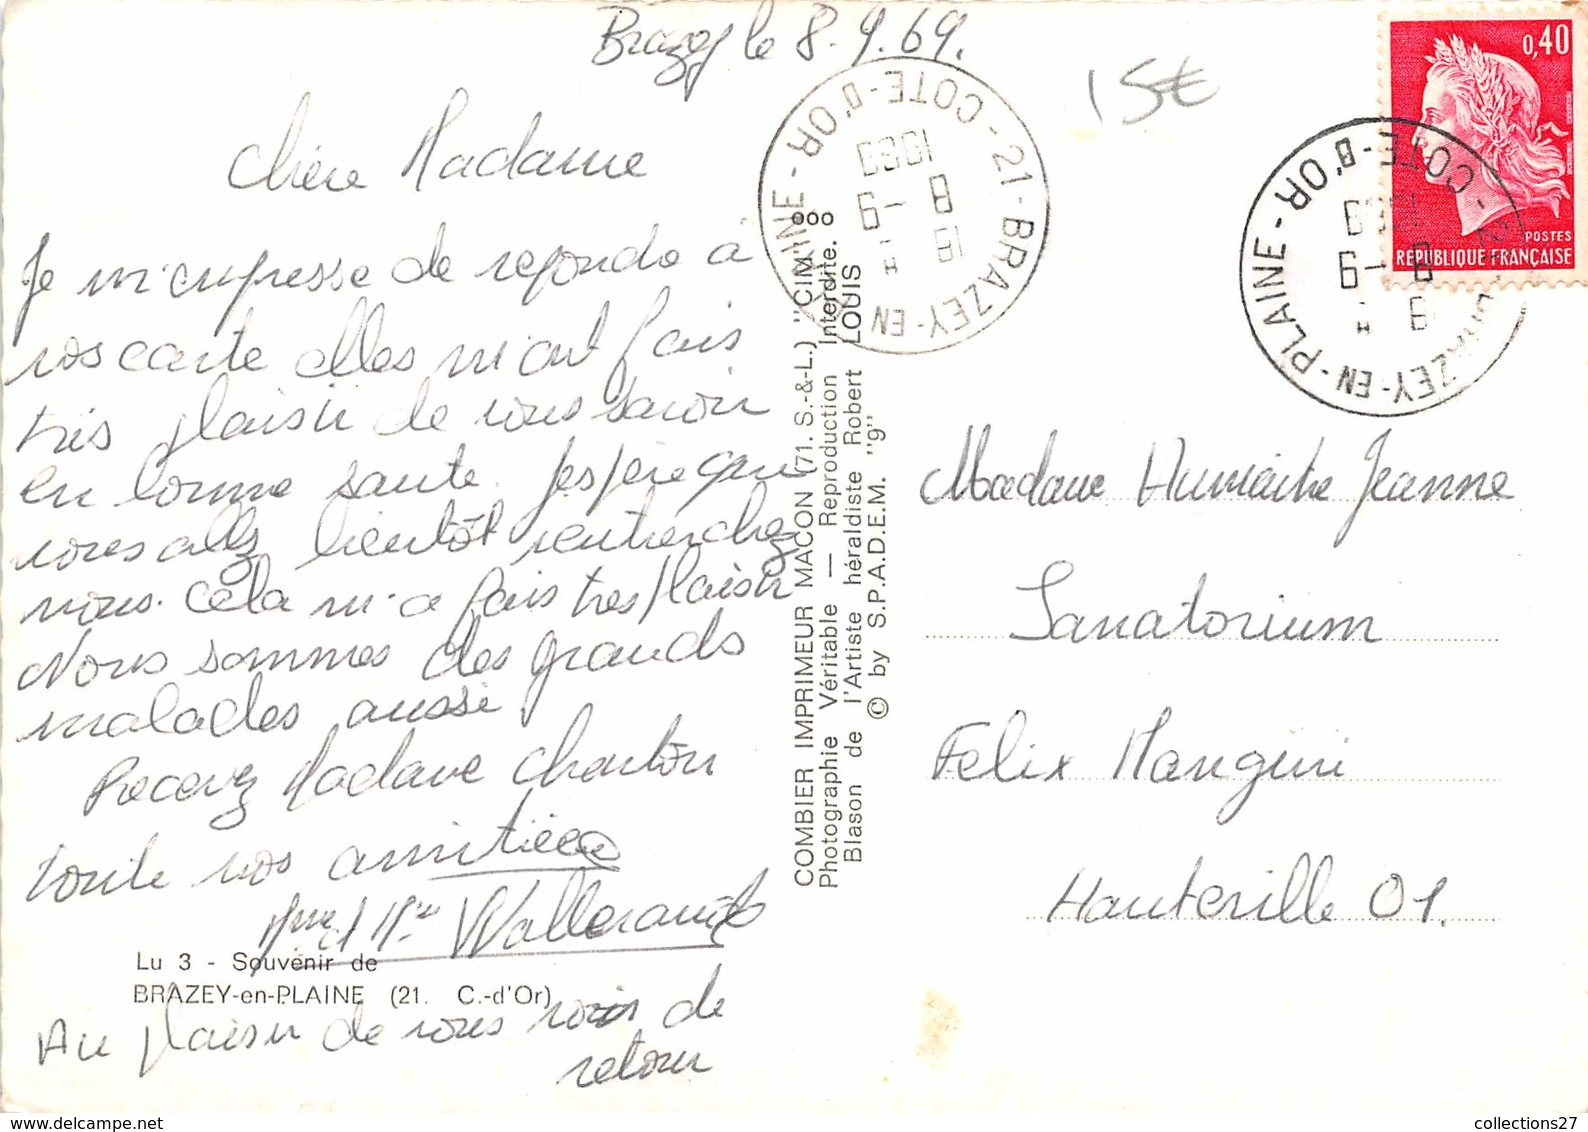 Brazey le 8.9.69.
15€
chère Madame
Je m'empresse de repondre à
vos carte elles m'ont fais
très plaisir de vous savoir
en bonne sante. J'espère que
vous allez bientôt rentrer chez
vous. Cela m'a fais tres plaisir
Nous sommes des grands
malades aussi.
Recevez Madame Charlton
toute nos amitiées
Mme et Mr Wallerand
Lu 3 - Souvenir de
BRAZEY-en-PLAINE (21. C.-d'Or)
Au plaisir de vous voir de
retour
COMBIER IMPRIMEUR MACON (71. S.-&-L.) "CIM"
Photographie Véritable — Reproduction Interdite. ooo
Blason de l'Artiste héraldiste Robert LOUIS
© by S.P.A.D.E.M. "9"
21 - BRAZEY-EN-PLAINE - COTE-D'OR
18 H
8 - 9
1969
0,40
POSTES
REPUBLIQUE FRANÇAISE
21 - BRAZEY-EN-PLAINE - COTE-D'OR
18 H
8 - 9
1969
Madame Humaire Jeanne
Sanatorium
Felix Mangini
Hauteville 01.
collections27